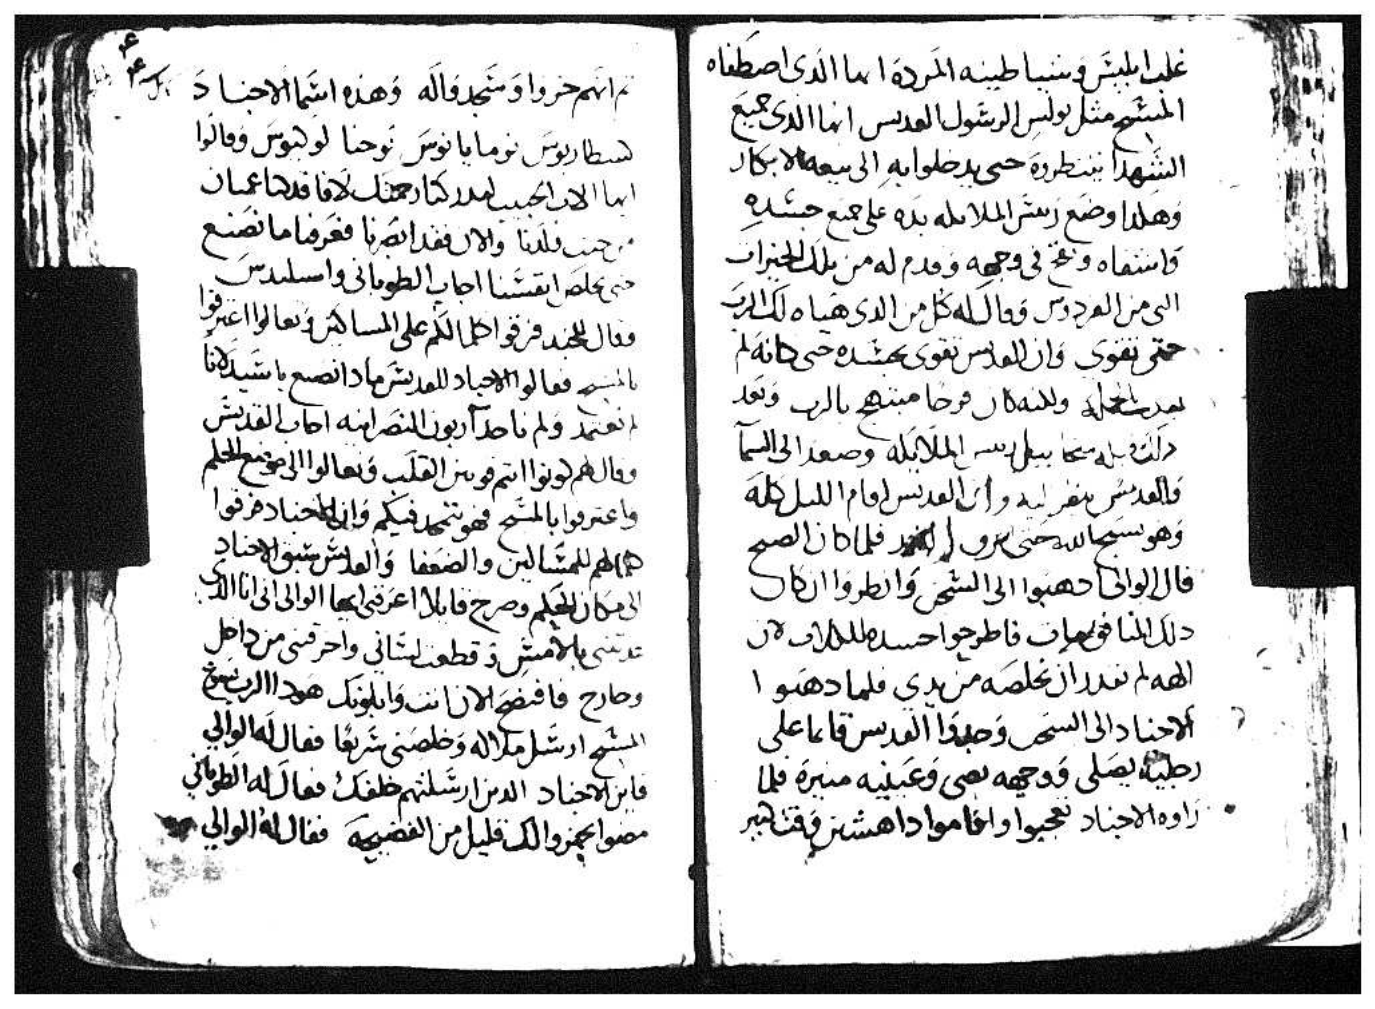 غلب ابليس وشياطينه المرده ايها الذى اصطفاه
المسيح مثل بولس الرسول القديس ايها الذى جميع
الشهدا ينتظروه حتى يدخلوا به الى بيعه الابكار
وهكدا وضع ريس الملايكه يده على جميع جسده
واشفاه ونفخ فى وجهه وقدم له من تلك الخيرات
التى من الفردوس وقال له كل من الدى هياه لك الرب
حتى تقوى وان القديس تقوى جسده حتى كانه لم
يعدب الجمله ولكنه كان فرحا مبتهج بالرب وبعد
دلك ميخاييل ريس الملايكه وصعد الى السما
والقديس ينظر اليه وان القديس اقام الليل كله
وهو يسبح الله حتى اشرق فلما كان الصبح
قال الوالى ادهبوا الى السجن وانطروا ان كان
دلك المنافق مات فاطرحوا جسده للكلاب لان
الهه لم يقدر ان يخلصه من يدي فلما دهبوا ا
الاجناد الى السجن وجدوا القديس قايما على
رجليه يصلى ووجهه يضى وعينيه منيره فلما
راوه الاجناد تعجبوا واقاموا داهشين وقت كبير
ثم انهم خروا وسجدو اله وهذه اسما الاجناد
وقالوا
ايها الاب الحبيب لتدركنا رحمتك لاننا كنا عميان
من حيث ولدنا والان فقد ابصرنا فعرفنا ما نصنع
حتى نخلص انفسنا اجاب الطوبانى واسيليدس
وقال للجند فرقوا كلما لكم على المساكين وتعالوا اعترفوا
بالمسيح فقالوا الاجناد للقديس مادا نصنع يا سيدنا لانا
لم نعتمد ولم ناخد اربون النصرانيه اجاب القديس
وقال لهم كونوا انتم قويين القلب وتعالوا الى موضع الحكم
واعترفوا بالمسيح فهو يتمجد فيكم وان الاجناد فرقوا
كمالهم للمساكين والضعفا والقديس سبق الاجناد
الى مكان الحكم وصرخ قايلا اعرفنى ايها الوالى انى انا الدى
عدبتنى بالامس وقطعت لسانى واحرقتنى من داخل
وخارج فافتضح الان انت وابلونك هودا الرب يسوع
المسيح ارسل ملاكه وخلصنى سريعا فقال له الوالي
فاين الاجناد الدين ارسلتهم خلفك فقال له الطوبانى
مضوا يجهزوا لك قليل من الفضيحه فقال له الوالي